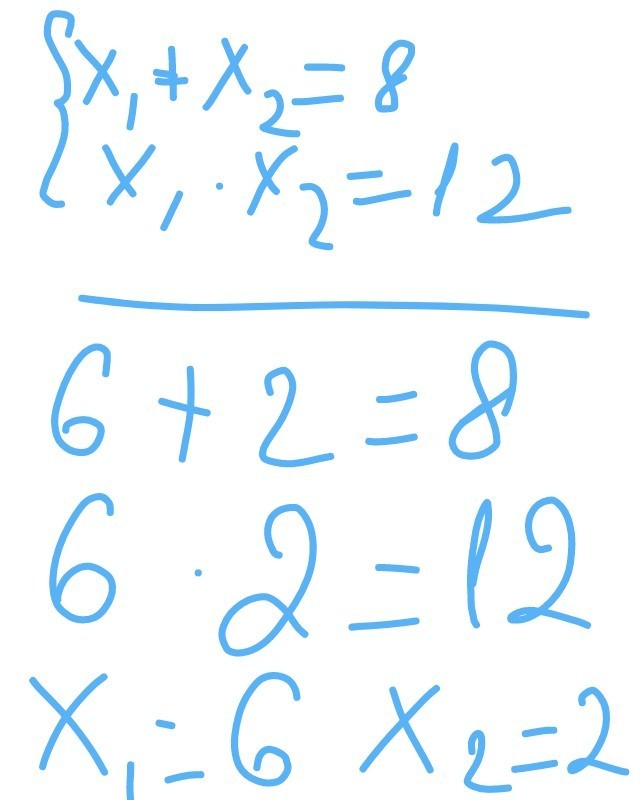 {x₁ + x₂ = 8
x₁ · x₂ = 12
6 + 2 = 8
6 · 2 = 12
x₁ = 6 x₂ = 2